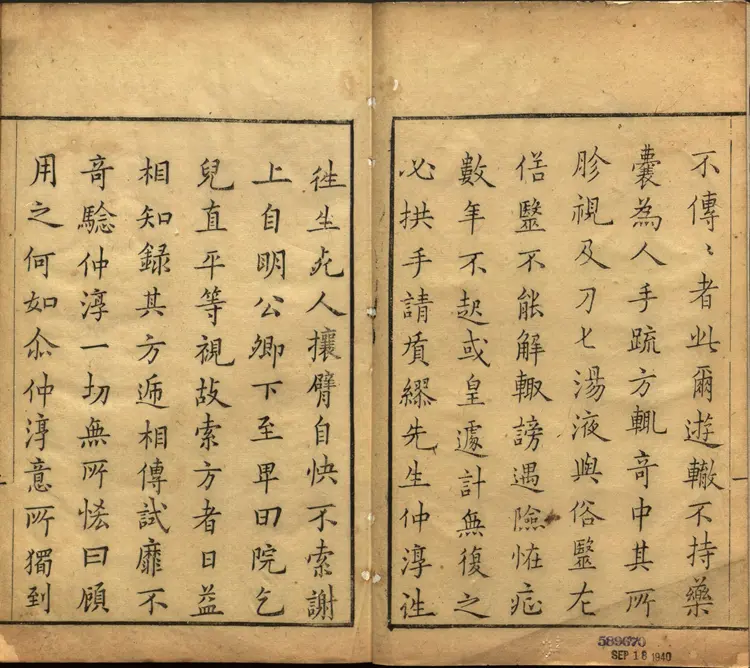 不傳〻者此爾遊轍不持藥
囊為人手疏方輒奇中其所
胗視及刀匕湯液與俗毉左
俗毉不能解輙謗遇險恠症
數年不起或皇遽計無復之
必拱手請質繆先生仲淳淳
徃生死人攘臂自快不索謝
上自明公卿下至卑田院乞
兒直平等視故索方者日益
相知録其方遞相傳試靡不
竒騐仲淳一切無所恡曰顧
用之何如尒仲淳意所獨到
589670
SEP 18 1940